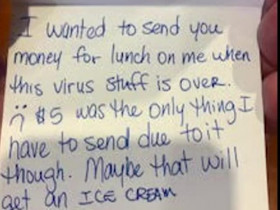 I wanted to send you
money for lunch on me when
this virus stuff is over.
:( $5 was the only thing I
have to send due to it
though. Maybe that will
get an ICE CREAM